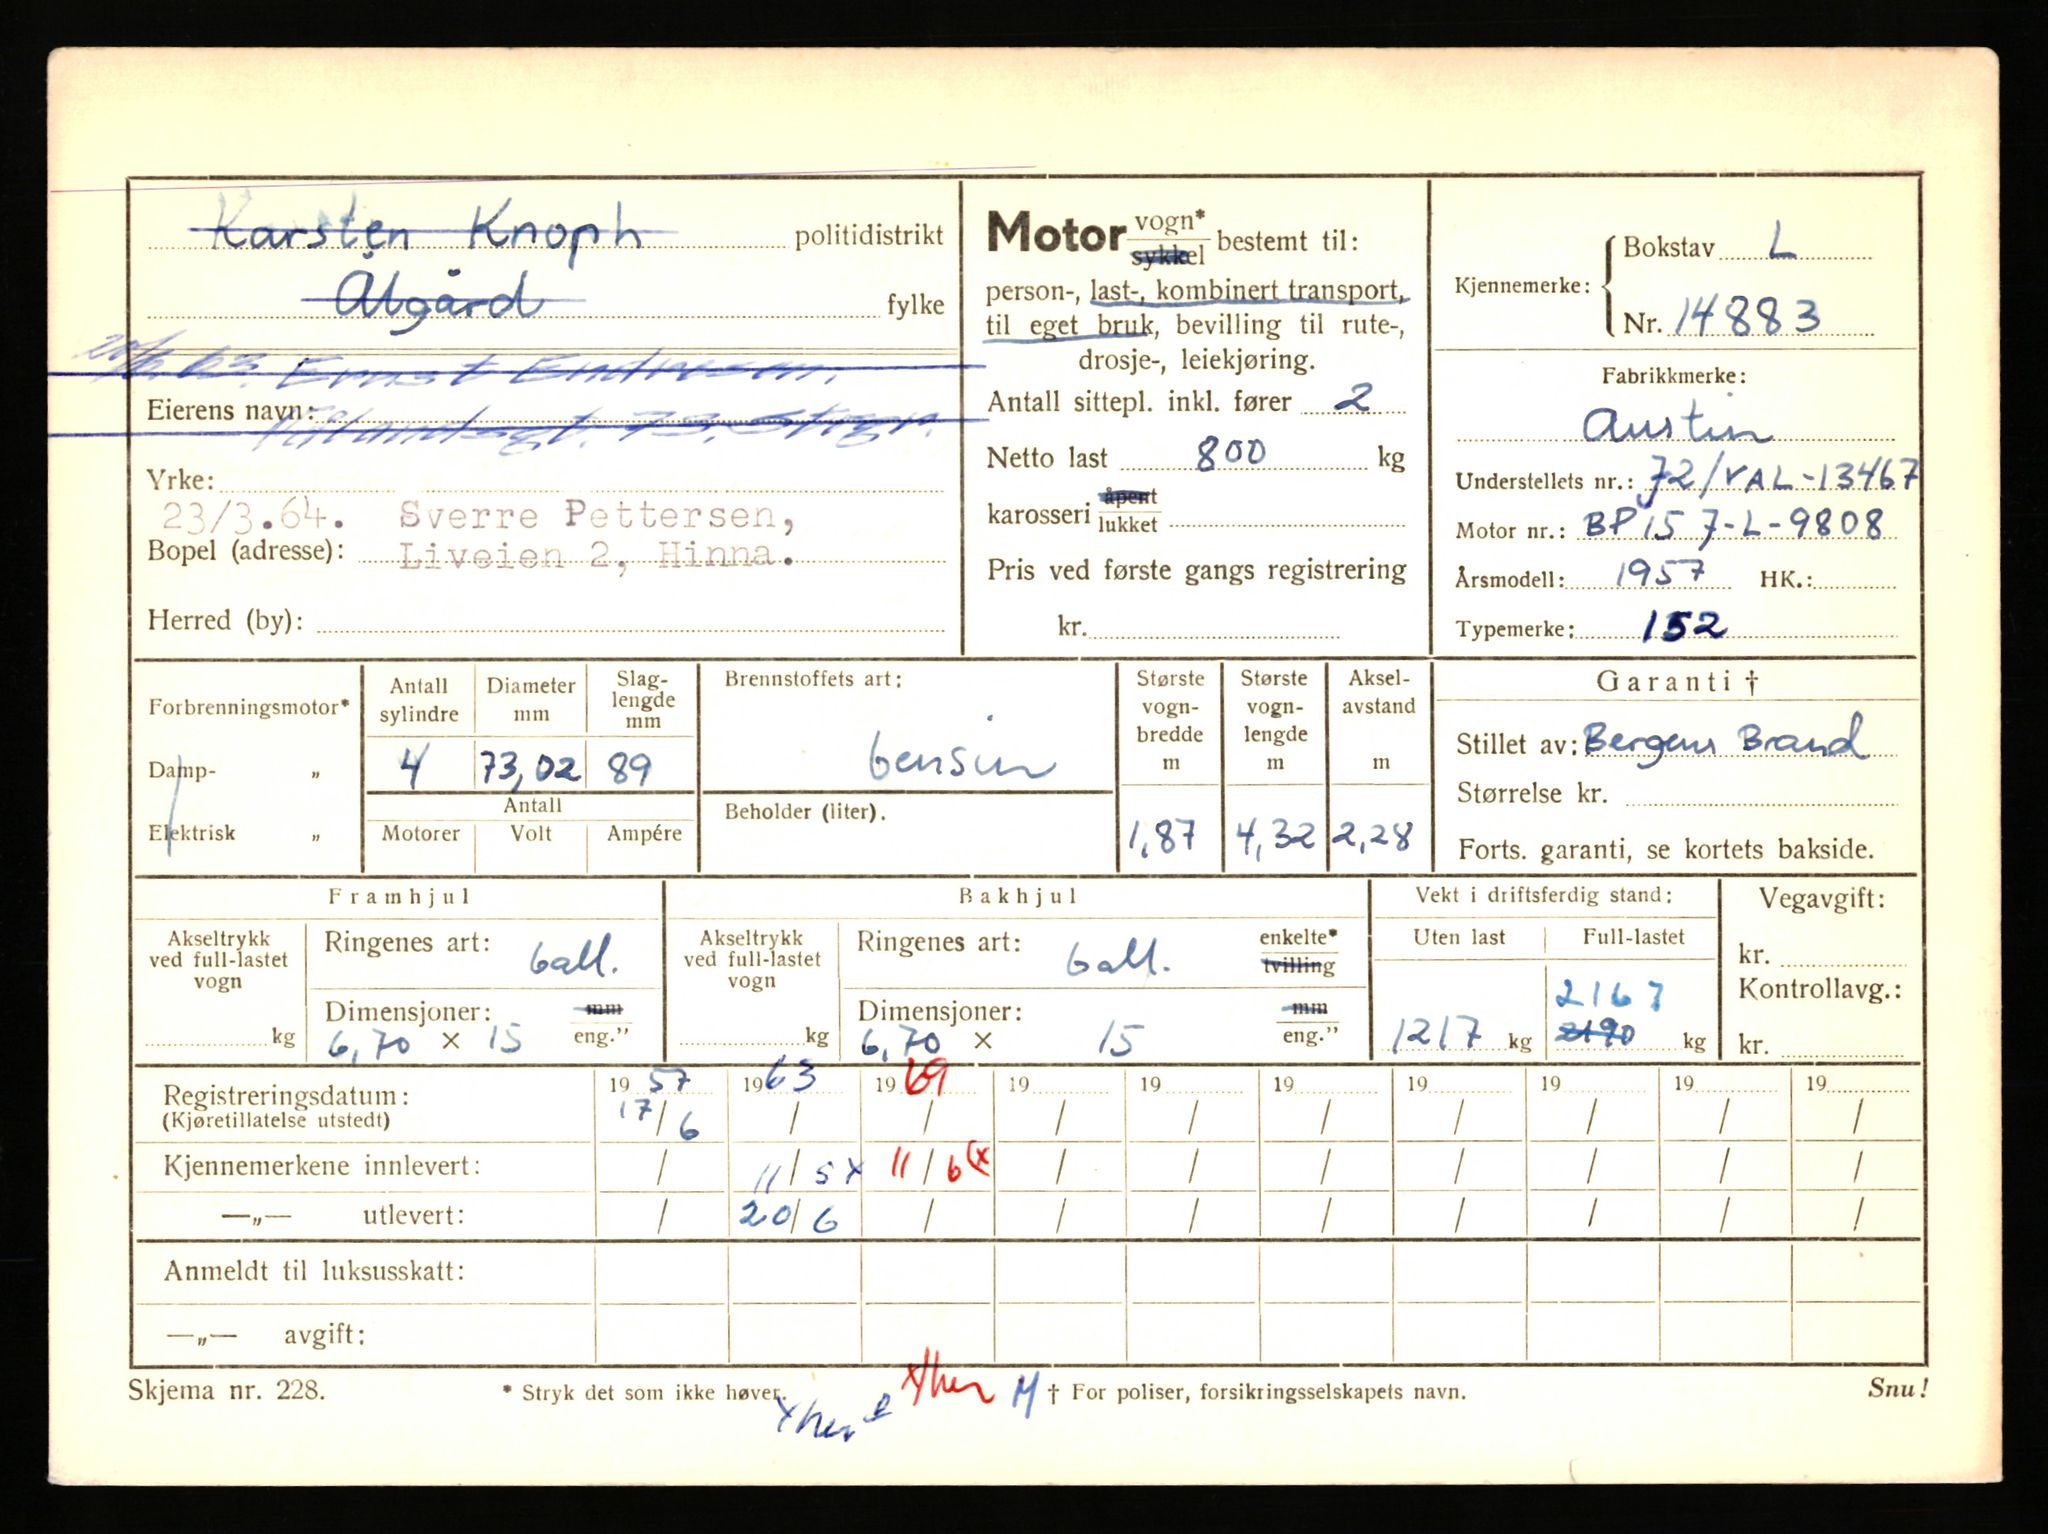 Karsten Knoph politidistrikt
Ålgård fylke
Ernst Endresen.
Eierens navn:
Yrke:
23/3.64. Sverre Pettersen,
Bopel (adresse): Liveien 2, Hinna.
Herred (by):
Motor vogn* sykkel bestemt til:
person-, last-, kombinert transport,
til eget bruk, bevilling til rute-,
drosje-, leiekjøring.
Antall sittepl. inkl. fører 2
Netto last 800 kg
karosseri åpent lukket
Pris ved første gangs registrering
kr.
Kjennemerke: Bokstav L
Nr. 14883
Fabrikkmerke:
Austin
Understellets nr.: 72/VAL-13467
Motor nr.: BP 15 7-L-9808
Årsmodell: 1957 HK.:
Typemerke: 152
Forbrenningsmotor*
Damp- „
Elektrisk „
Antall sylindre
4
Diameter mm
73,02
Slag-lengde mm
89
Antall
Motorer Volt Ampére
Brennstoffets art:
bensin
Beholder (liter).
Største vogn-bredde m
1,87
Største vogn-lengde m
4,32
Aksel-avstand m
2,28
Garanti †
Stillet av: Bergens Brand
Størrelse kr.
Forts. garanti, se kortets bakside.
Framhjul
Akseltrykk ved full-lastet vogn
kg
Ringenes art: ball.
Dimensjoner: mm
6,70 × 15 eng.”
Bakhjul
Akseltrykk ved full-lastet vogn
kg
Ringenes art: ball. enkelte* tvilling
Dimensjoner: mm
6,70 × 15 eng.”
Vekt i driftsferdig stand:
Uten last Full-lastet
1217 kg 2167 2190 kg
Vegavgift:
kr.
Kontrollavg.:
kr.
Registreringsdatum: 19 57 19 63 19 69 19 19 19 19 19 19 19
(Kjøretillatelse utstedt) 17/6 / / / / / / / / /
Kjennemerkene innlevert: / 11/5 x 11/6 (x / / / / / / /
—„— utlevert: / 20/6 / / / / / / / /
Anmeldt til luksusskatt:
—„— avgift:
Skjema nr. 228. * Stryk det som ikke høver. xher M † For poliser, forsikringsselskapets navn. Snu!
xher